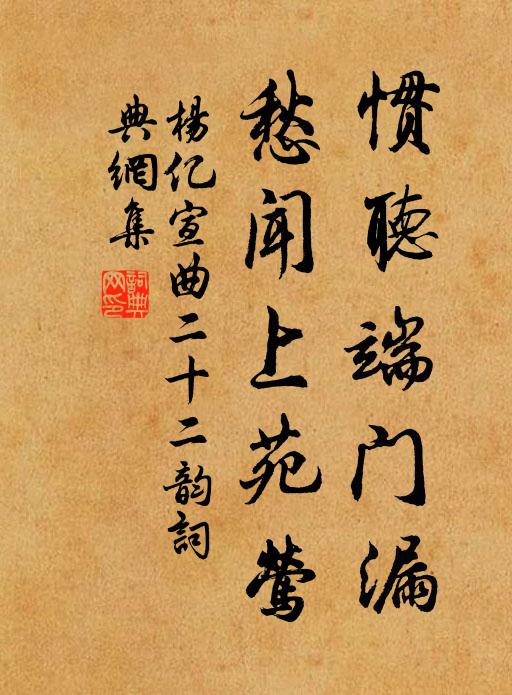 惯聽端门漏
愁闻上苑莺
楊亿宣曲二十二韵詞
典網集
詞典网印